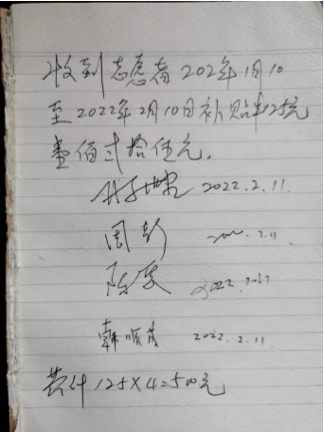 收到志愿者202年1月10
至2022年2月10日补贴￥125元
壹佰弍拾伍元.
2022.2.11.
周彭
2.11.
陈
2022.
韩顺茂 2022.2.11.
共计125×4=500元